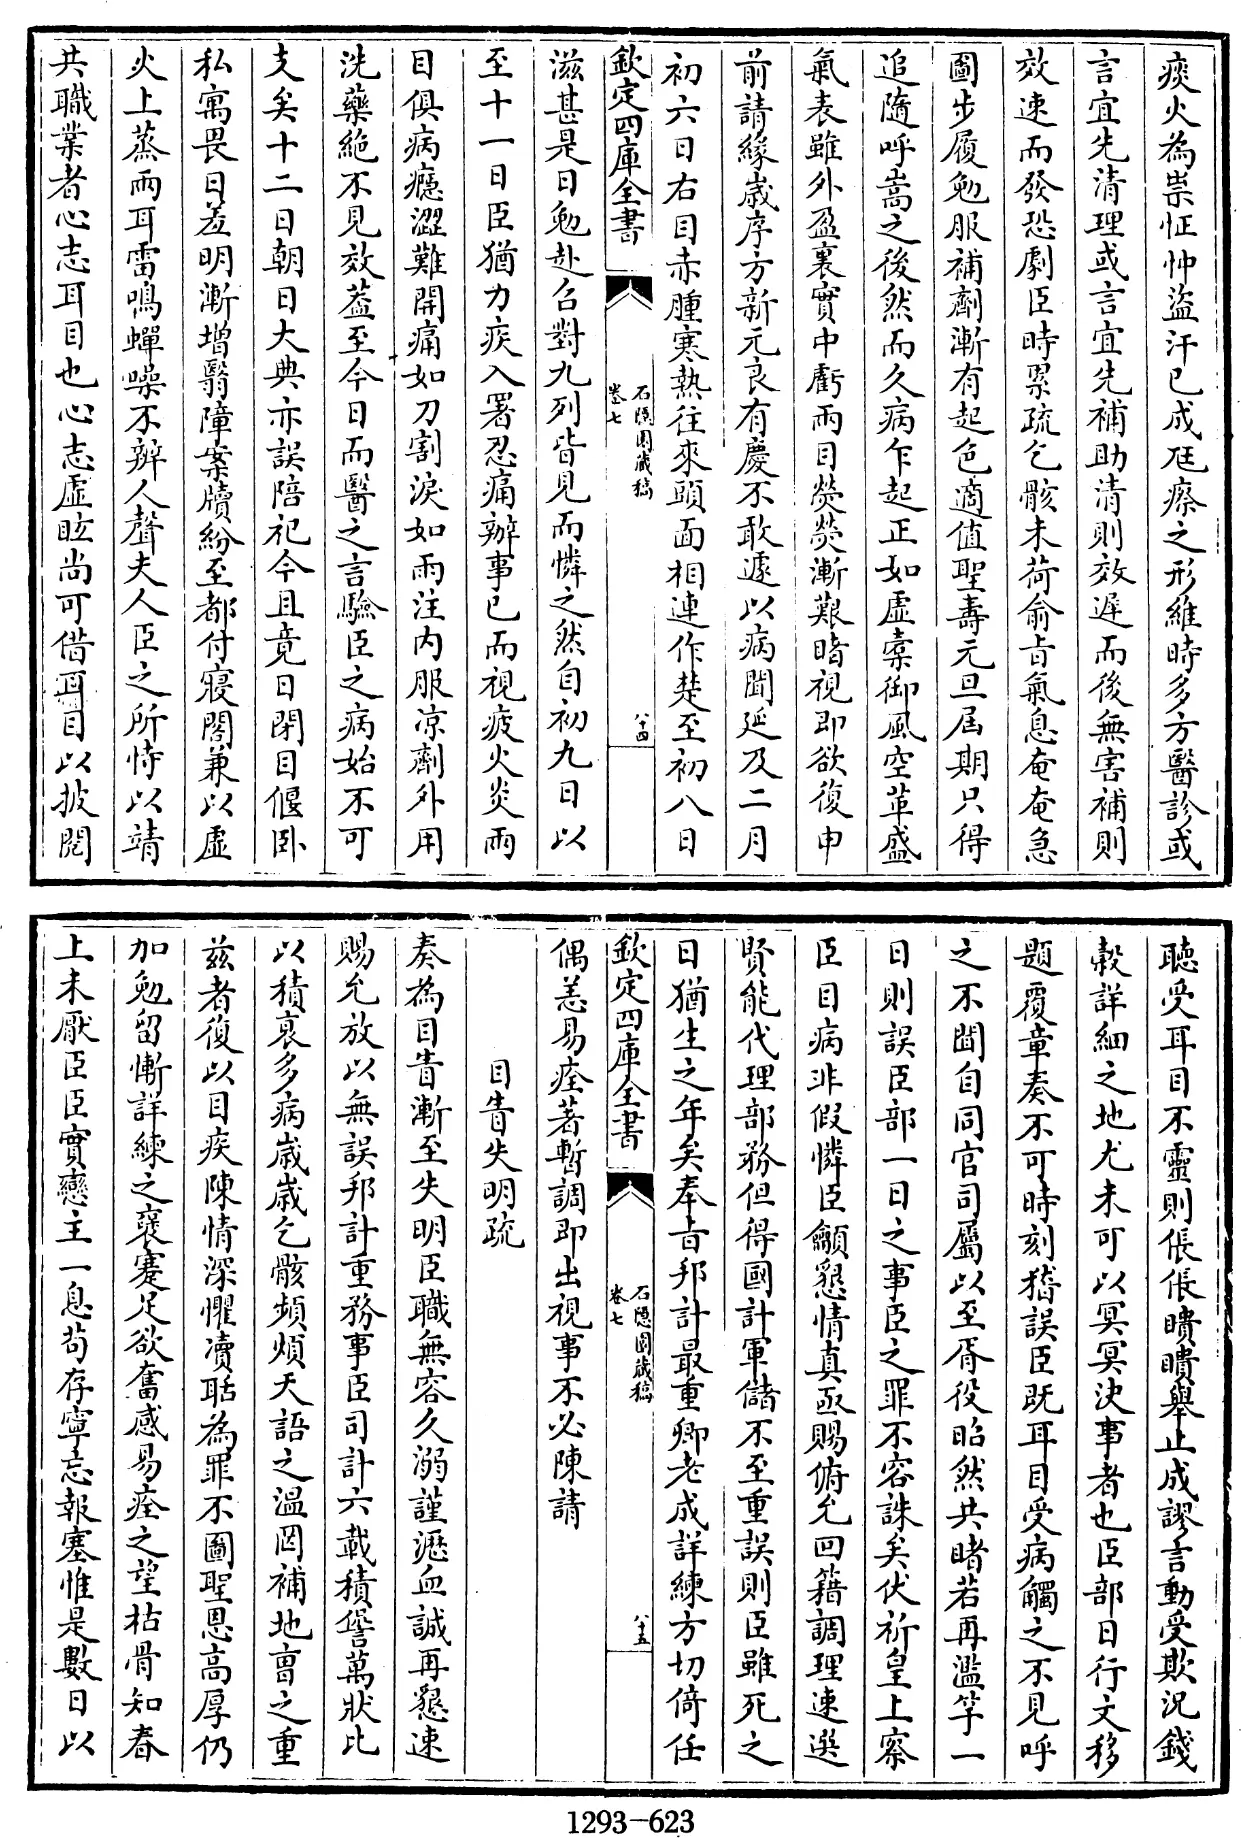 痰火為祟怔忡盜汗已成尫瘵之形維時多方醫診或
言宜先清理或言宜先補助清則效遲而後無害補則
效速而發恐劇臣時累疏乞骸未荷俞㫖氣息奄奄急
圖步履勉服補劑漸有起色適值聖壽元旦屆期只得
追隨呼嵩之後然而久病乍起正如虛槖御風空革盛
氣表雖外盈裏實中虧兩目熒熒漸艱睹視即欲復申
前請緣歲序方新元良有慶不敢遽以病聞延及二月
初六日右目赤腫寒熱往來頭面相連作楚至初八日
欽定四庫全書
石隱園藏稿
卷七
八十四
滋甚是日勉赴召對九列皆見而憐之然自初九日以
至十一日臣猶力疾入署忍痛辦事已而視疲火炎兩
目俱病癮澀難開痛如刀割淚如雨注内服凉劑外用
洗藥絶不見效葢至今日而醫之言驗臣之病始不可
支矣十二日朝日大典亦誤陪祀今且竟日閉目偃卧
私寓畏日羞明漸增翳障案牘紛至都付寢閣兼以虛
火上蒸兩耳雷鳴蟬噪不辨人聲夫人臣之所恃以靖
共職業者心志耳目也心志虛眩尚可借耳目以披閲
聽受耳目不靈則倀倀瞶瞶舉止成謬言動受欺況錢
穀詳細之地尤未可以冥冥決事者也臣部日行文移
題覆章奏不可時刻稽誤臣既耳目受病觸之不見呼
之不聞自同官司屬以至胥役昭然共睹若再濫竽一
日則誤臣部一日之事臣之罪不容誅矣伏祈皇上察
臣目病非假憐臣籲懇情真亟賜俯允回籍調理速選
賢能代理部務但得國計軍儲不至重誤則臣雖死之
日猶生之年矣奉㫖邦計最重卿老成詳練方切倚任
欽定四庫全書
石隱園藏稿
卷七
八十五
偶恙易痊著暫調即出視事不必陳請
目眚失明疏
奏為目眚漸至失明臣職無容久溺謹瀝血誠再懇速
賜允放以無誤邦計重務事臣司計六載積諐萬狀比
以積衰多病歲歲乞骸頻煩天語之溫罔補地曹之重
兹者復以目疾陳情深懼瀆聒為罪不圖聖恩高厚仍
加勉留慚詳練之褒蹇足欲奮感易痊之望枯骨知春
上未厭臣臣實戀主一息苟存寧忘報塞惟是數日以
1293-623